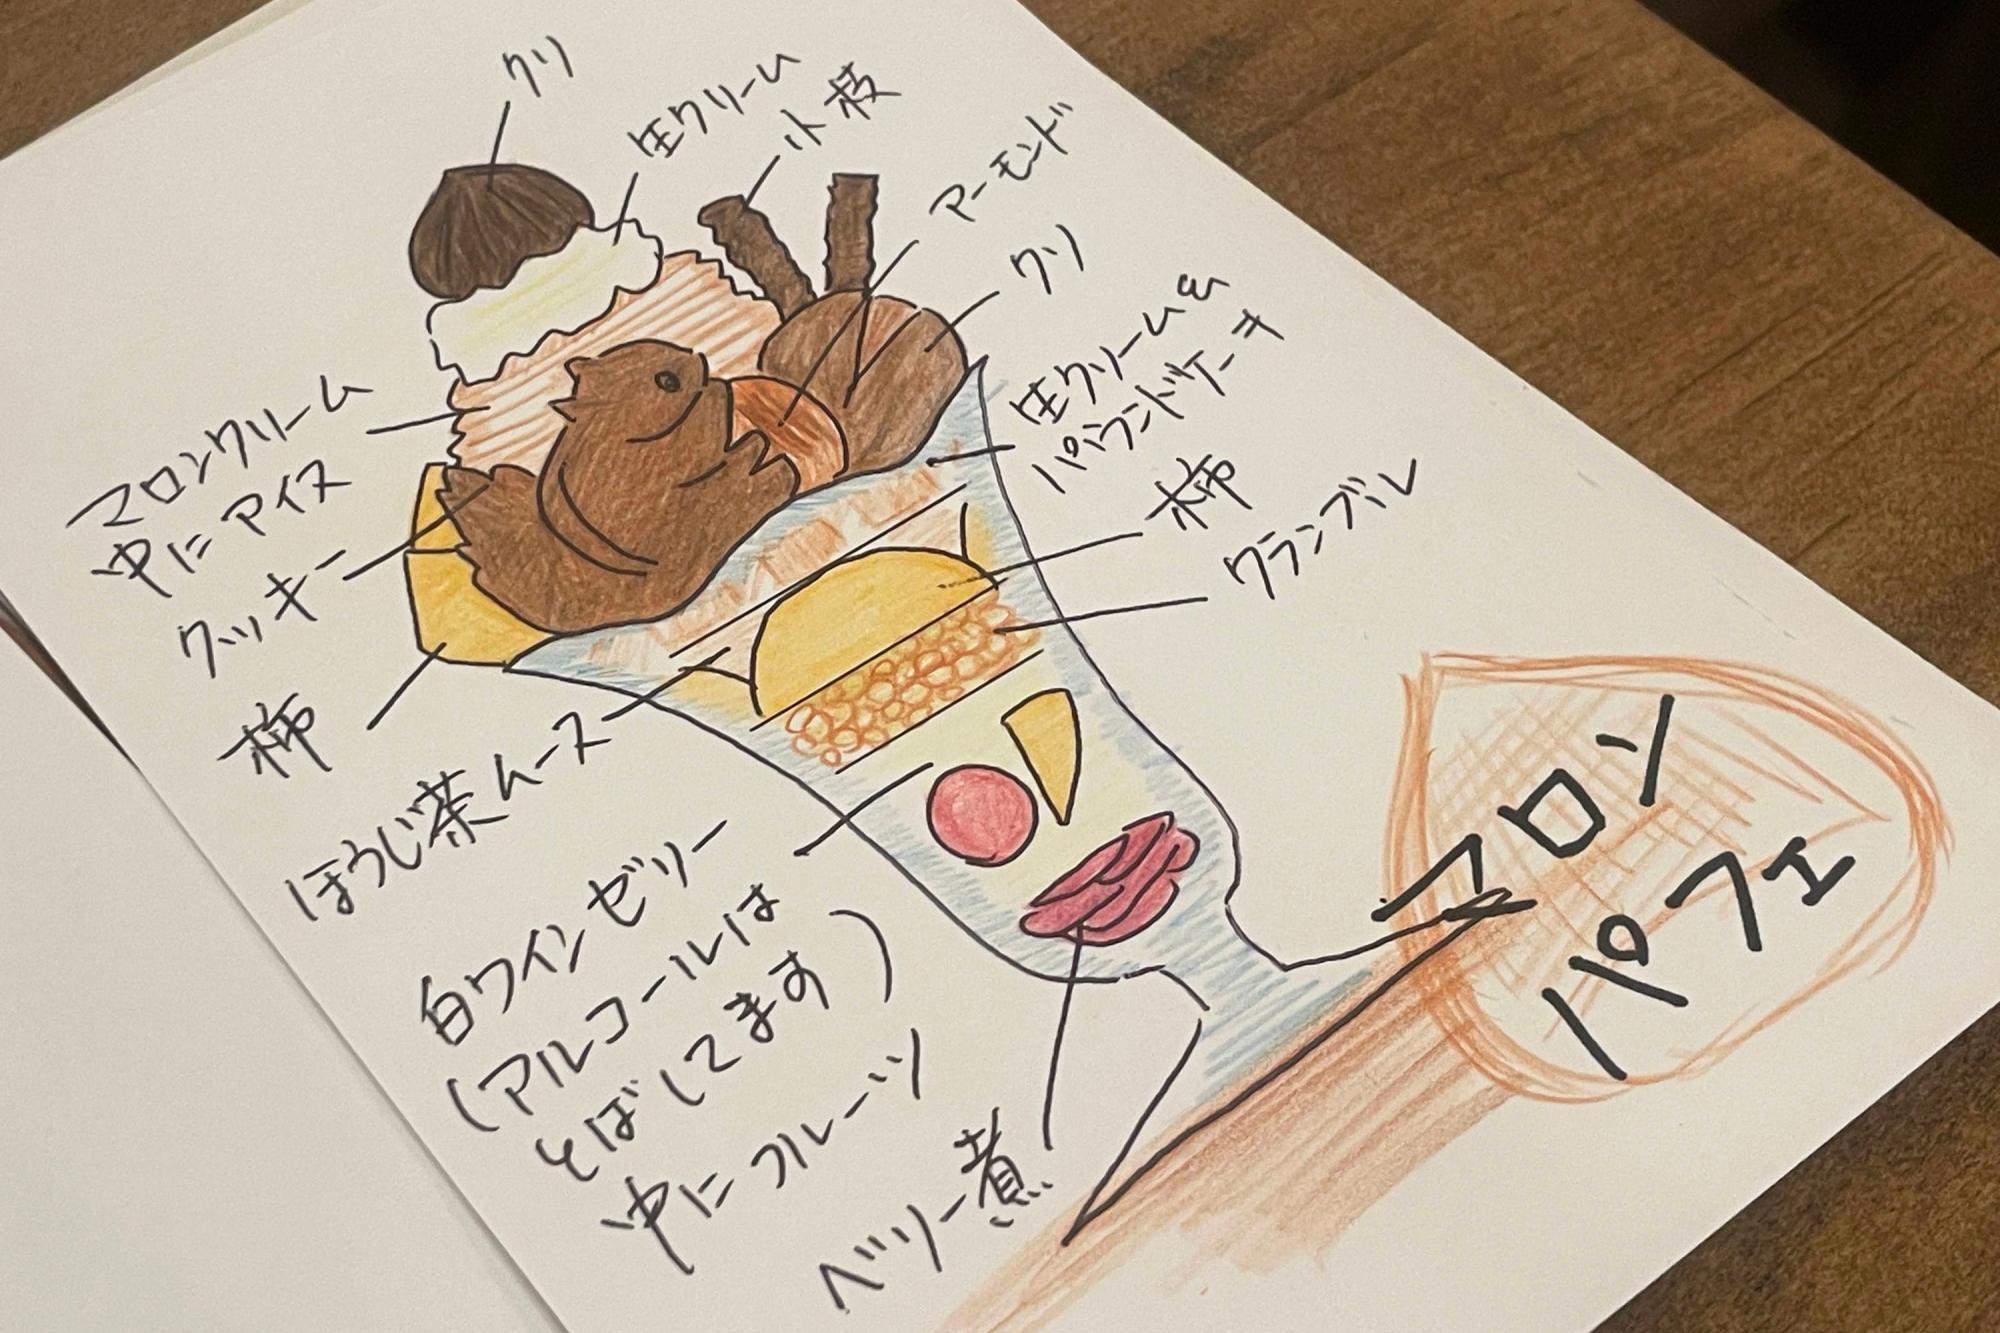 クリ
生クリーム
小枝
アーモンド
クリ
生クリーム&
パウンドケーキ
柿
クランブル
マロンクリーム
中にアイス
クッキー
柿
ほうじ茶ムース
白ワインゼリー
(アルコールは
とばしてます)
中にフルーツ
ベリー煮
マロン
パフェ